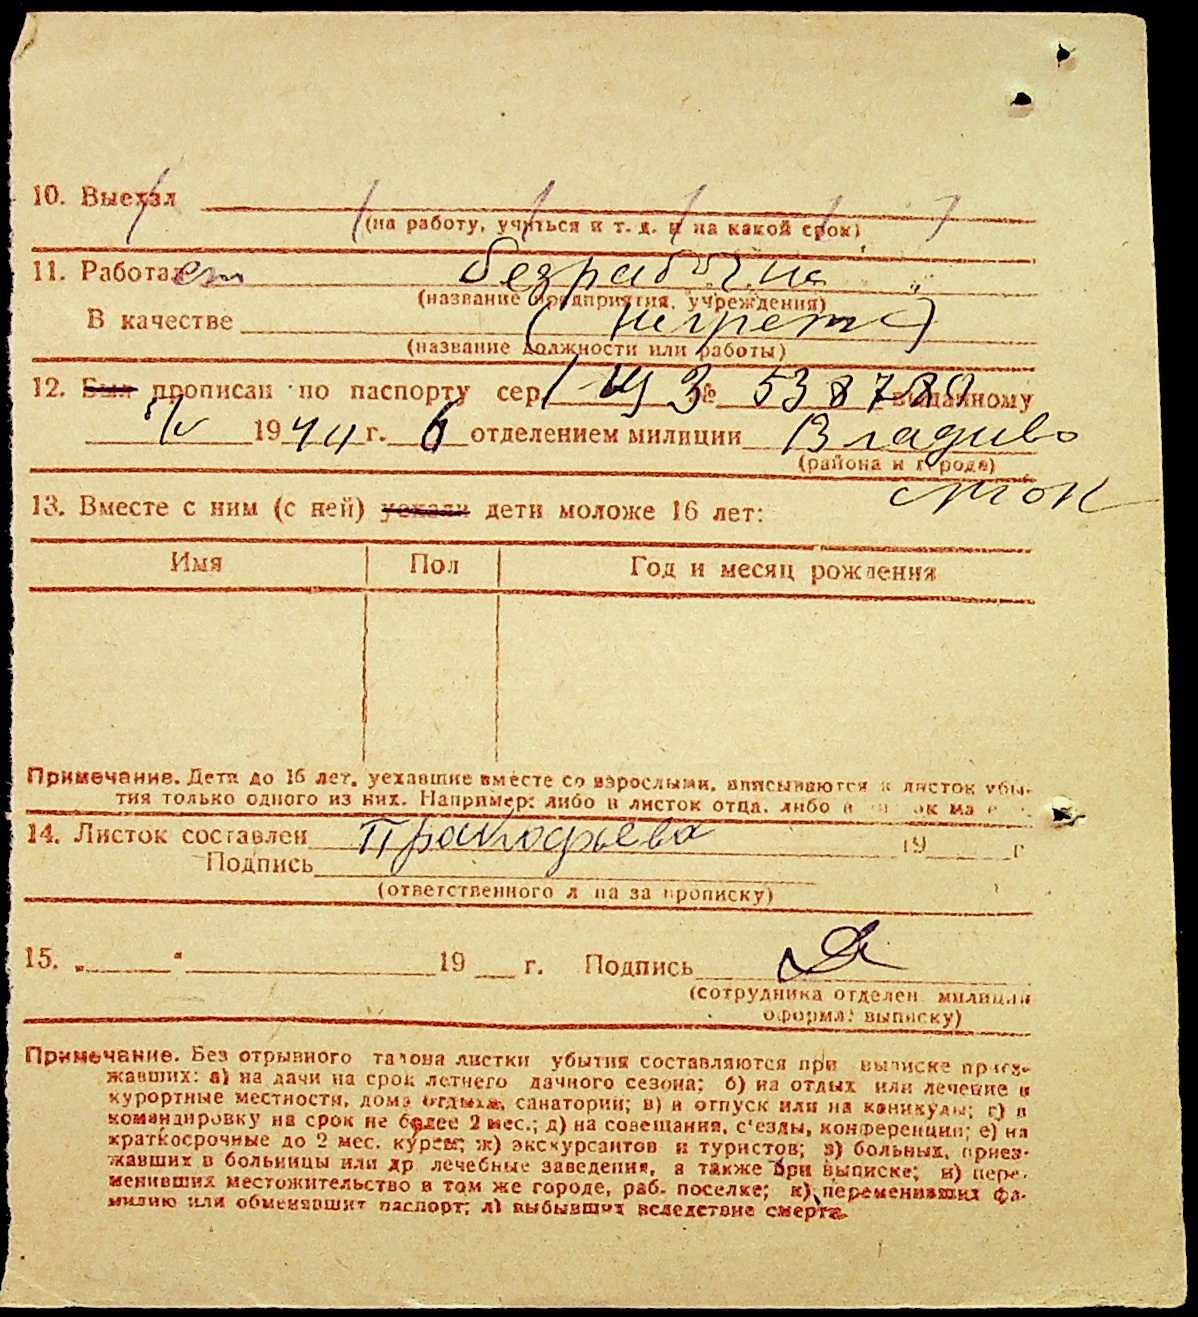 10. Выехал
(на работу, учиться и т. д. и на какой срок)
11. Работает
(название предприятия, учреждения)
В качестве
(название должности или работы)
12. Был прописан по паспорту сер. № 538789 выданному
IV 1944 г. 6 отделением милиции Владиво
(района и города)
сток
13. Вместе с ним (с ней) уехали дети моложе 16 лет:
Имя Пол Год и месяц рождения
Примечание. Дети до 16 лет, уехавшие вместе со взрослыми, вписываются в листок убы-
тия только одного из них. Например: либо в листок отца, либо в
14. Листок составлен Пракофьева 19 г
Подпись
(ответственного лица за прописку)
15. „ " 19 г. Подпись
(сотрудника отделен. милиции
оформл. выписку)
Примечание. Без отрывного талона листки убытия составляются при выписке приез-
жавших: а) на дачи на срок летнего дачного сезона; б) на отдых или лечение в
курортные местности, дома отдыха, санатории; в) в отпуск или на каникулы; г) в
командировку на срок не более 2 мес.; д) на совещания, с'езды, конференции; е) на
краткосрочные до 2 мес. курсы; ж) экскурсантов и туристов; з) больных, приез-
жавших в больницы или др лечебные заведения, а также при выписке; и) пере-
менивших местожительство в том же городе, раб. поселке; к) переменивших фа-
милию или обменявших паспорт; л) выбывших вследствие смерти.